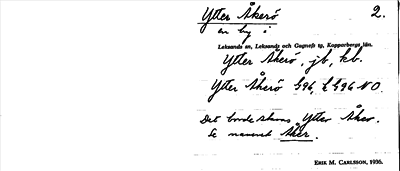 Ytter Åkerö 2.
en by i
Leksands sn, Leksands och Gagnefs tg, Kopparbergs län.
Ytter Åkerö, jb, kb.
Ytter Åkerö G96, £ G96 NO.
Det borde skrivas Ytter Åker.
Se namnet Åker.
ERIK M. CARLSSON, 1936.